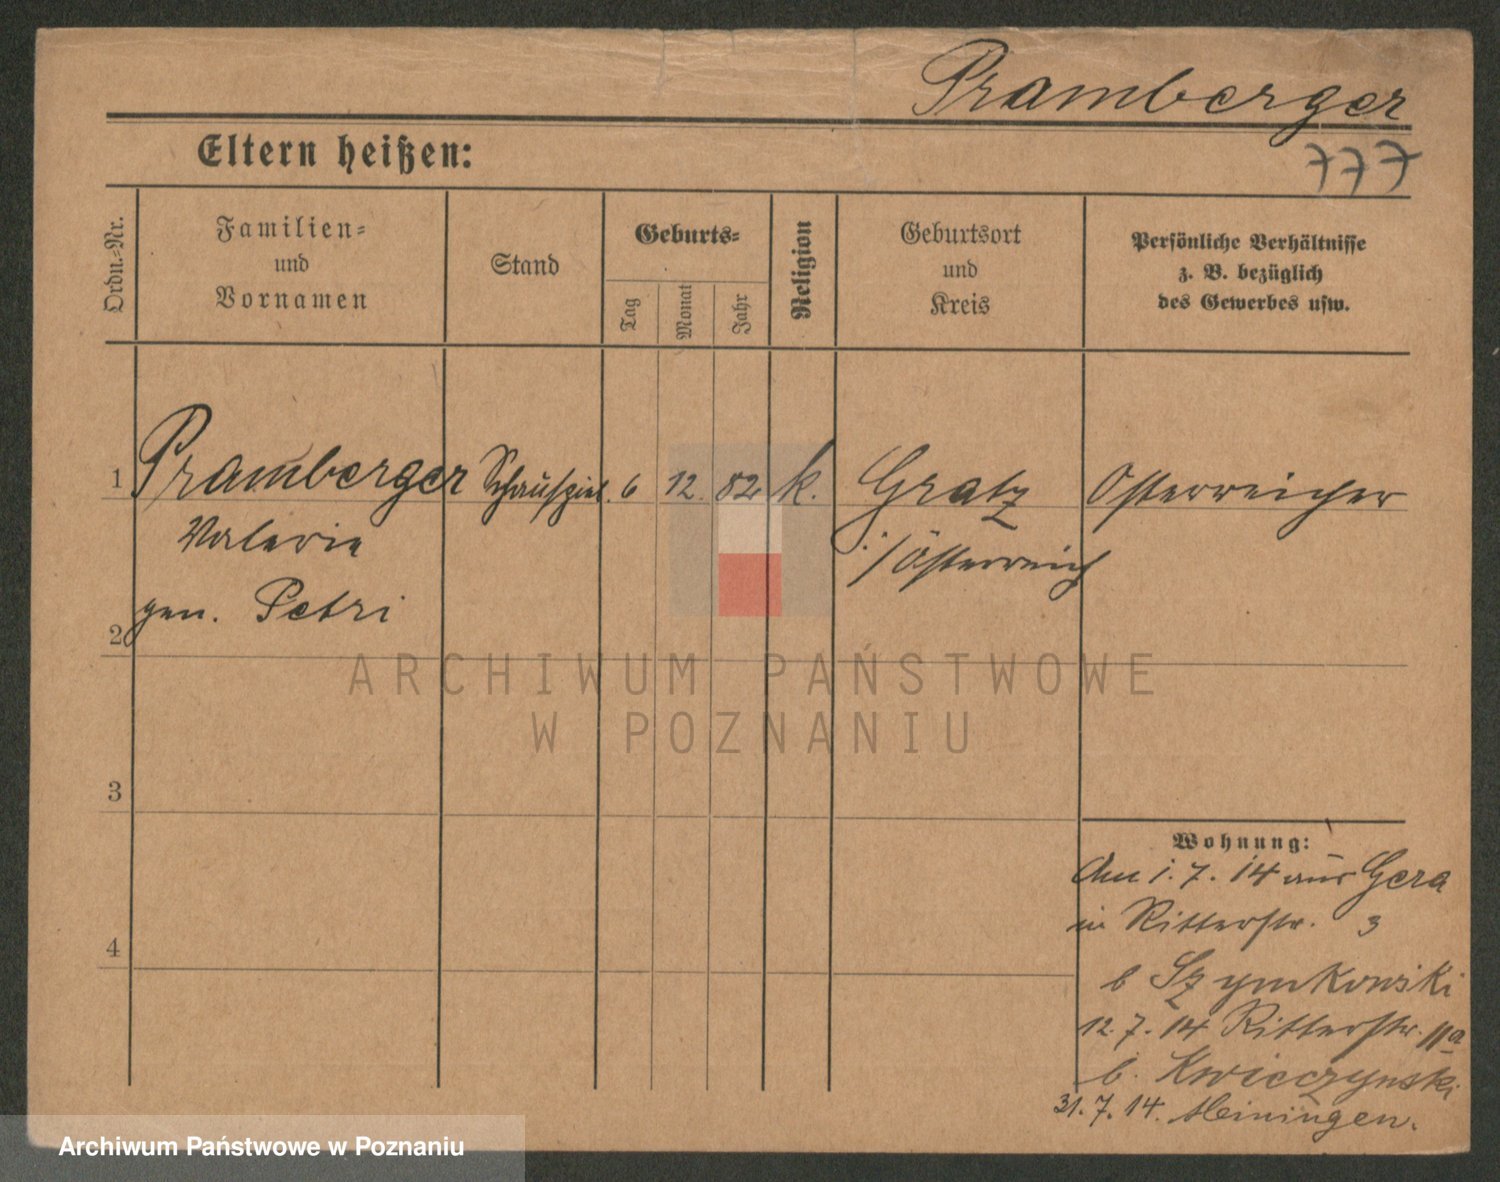 Pramberger
777
Eltern heißen:
Ordn.-Nr.
Familien-
und
Vornamen
Stand
Geburts-
Tag
Monat
Jahr
Religion
Geburtsort
und
Kreis
Persönliche Verhältnisse
z. B. bezüglich
des Gewerbes usw.
1 Pramberger Schauspiel. 6 12. 82 k. Gratz Österreicher
Valerie
i/Österreich
gen. Petri
2
ARCHIWUM PAŃSTWOWE
W POZNANIU
3
Wohnung:
Am 1. 7. 14 aus Gera
in Ritterstr. 3
4
b Szymkowski
12. 7. 14 Ritterstr. 11a
b. Kwieczynski
31. 7. 14. Meiningen.
Archiwum Państwowe w Poznaniu